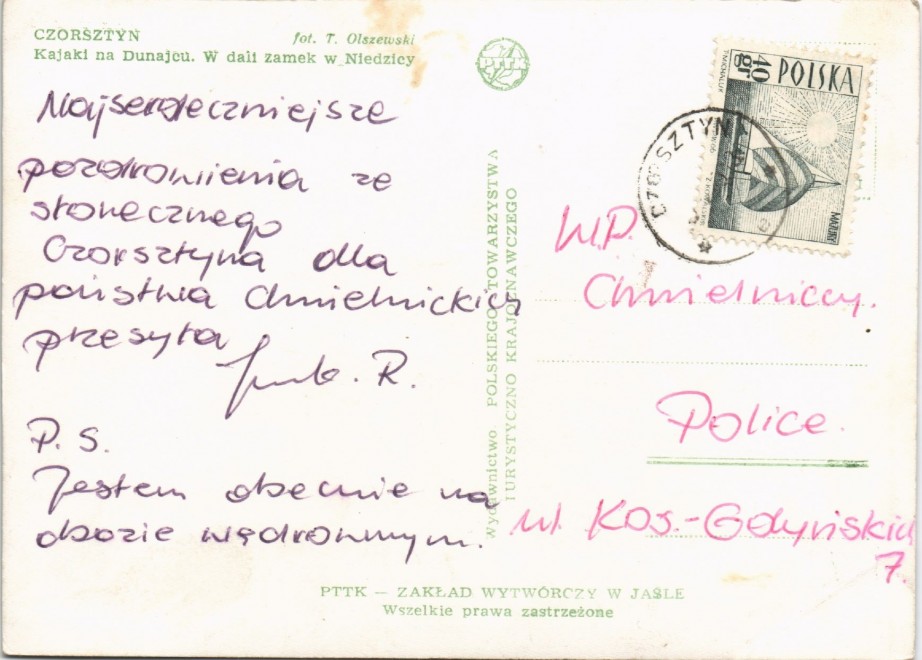 CZORSZTYN
fot. T. Olszewski
Kajaki na Dunajcu. W dali zamek w Niedzicy
PTTK
40 gr
POLSKA
MAZURY
CZORSZTYN
Najserdeczniejsze
pozdrowienia ze
słonecznego
Czorsztyna dla
państwa Chmielnickich
przesyła
R.
P.S.
Jestem obecnie na
obozie wędrownym.
Wydawnictwo POLSKIEGO TOWARZYSTWA
TURYSTYCZNO KRAJOZNAWCZEGO
W.P.
Chmielniccy.
Police.
ul. Kos.-Gdyńskich
7.
PTTK — ZAKŁAD WYTWÓRCZY W JAŚLE
Wszelkie prawa zastrzeżone